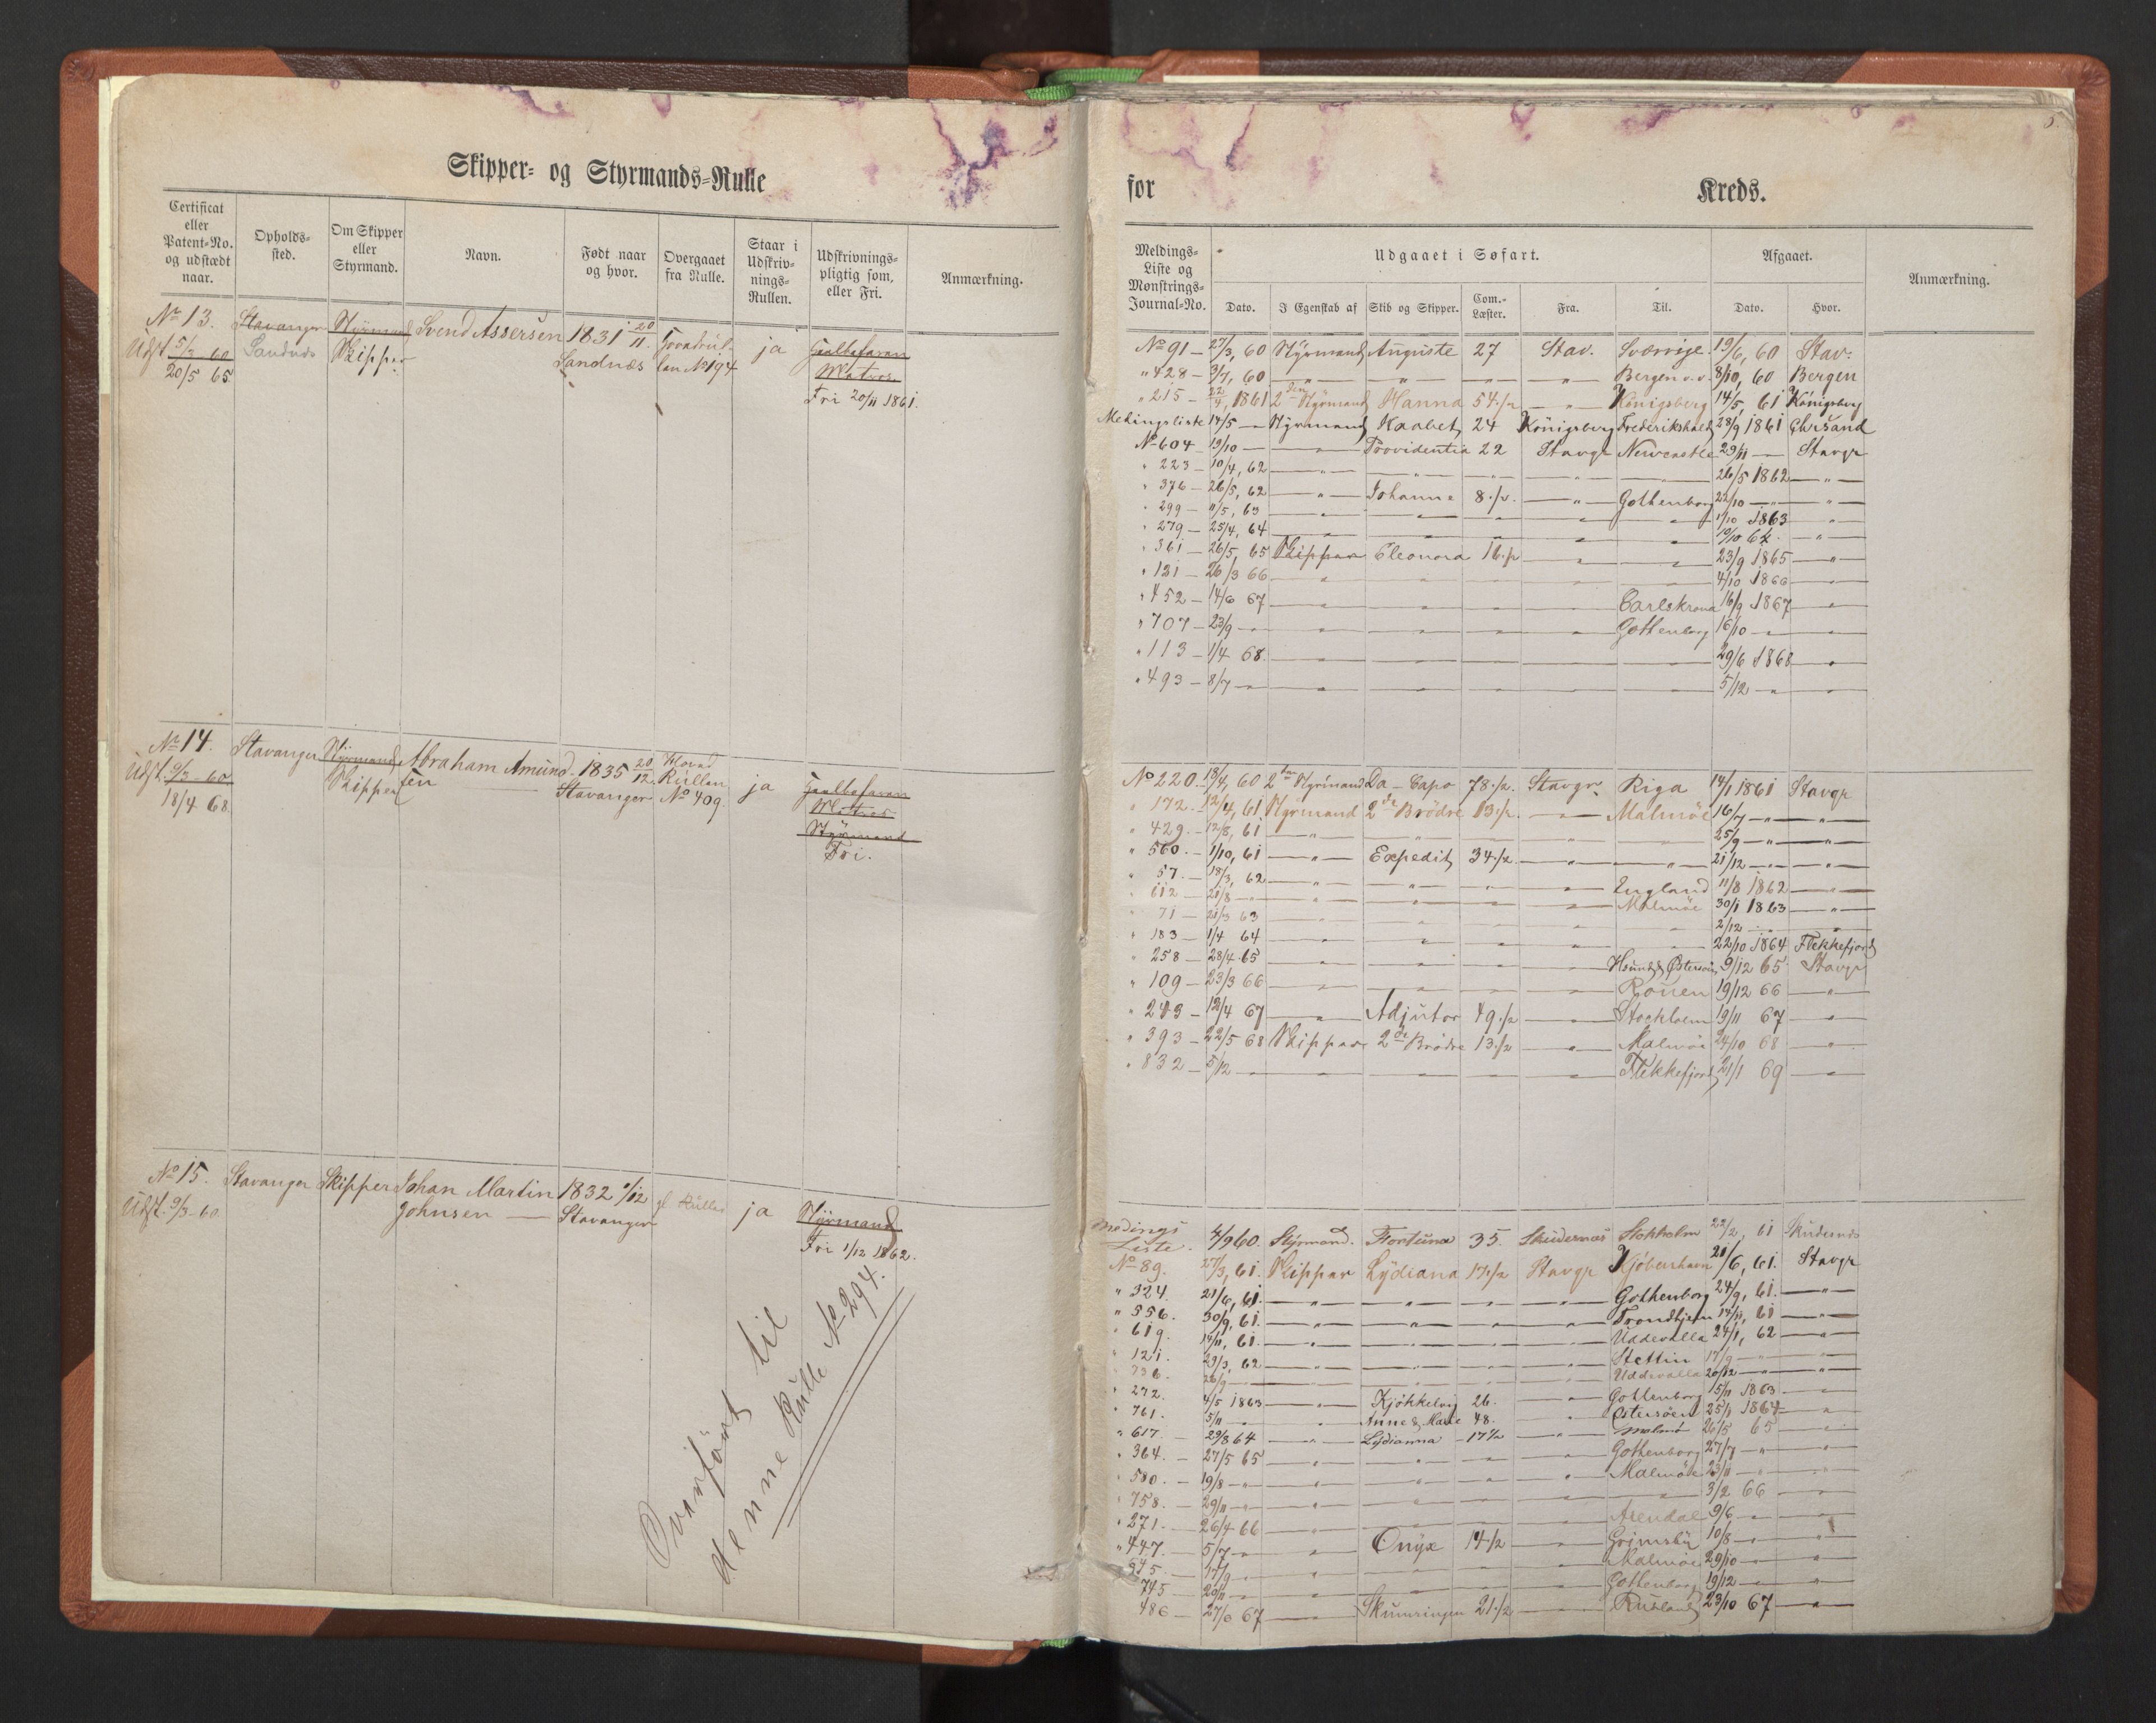 Skipper- og Styrmands-Rulle
Certificat eller Patent-No. og udstædt naar.
Opholds-sted.
Om Skipper eller Styrmand.
Navn.
Født naar og hvor.
Overgaaet fra Rulle.
Staar i Udskriv-nings-Rullen.
Udskrivnings-pligtig som, eller Fri.
Anmærkning.
No 13. Stavanger Styrmand Svend Assersen 1831 20/11 ja
Udst. 5/3 60 Sandnæs Skipper Sandnæs No 194 Matros
20/5 65 Fri 20/11 1861.
No 14. Stavanger Styrmand Abraham Amund- 1835 20/12 Hoved ja
Udst. 9/3 60 Skipper sen Stavanger Rullen Matros
18/4 68. No 409. Styrmand
Fri.
No 15. Stavanger Skipper Johan Martin 1832 1/12 gl Rulles ja Styrmand
Udst. 9/3 60 Johnsen Stavanger Fri 1/12 1862.
Overført til
denne Rulle No 294.
for Kreds.
5.
Meldings-Liste og Mønstrings-Journal-No.
Udgaaet i Søfart.
Afgaaet.
Anmærkning.
Dato. I Egenskab af Skib og Skipper. Com.-Læster. Fra. Til. Dato. Hvor.
No 91 27/3, 60 Styrmand Auguste 27 Stav. Sverrige 19/6, 60 Stav:
" 428 3/7, 60 " " " Bergen 8/10, 60 Bergen
" 215 1861 2den Styrmand Hanna 54 1/2 " Königsberg 14/5, 61 Königsberg
Meldingsliste 14/5 Styrmand 24 Königsberg Frederikshald 28/9 1861 Chrsand
No 604 19/10 Providentia 22 Stavgr Newcastle 29/11 Stavgr
" 223 10/4, 62 " " " 26/5 1862 "
" 376 26/5, 62 " Johanne 8 1/2 " Gothenborg 22/10 "
" 299 11/5, 63 " " " " " 1/10 1863 "
" 279 25/4, 64 " " " " " 10/10 64. "
" 361 26/5, 65 Skipper Eleonora 16 1/2 " " 23/9 1865 "
" 121 26/3 66 " " " " " 4/10 1866 "
" 452 14/6 67 " " " " Carlskrona 16/9 1867 "
" 707 23/9 " " " " " Gothenborg 16/10 " "
" 113 1/4 68. " " " " " 29/6 1868 "
" 493 8/7 " " " " " " 5/12 " "
No 220 18/4, 60 2den Styrmand Da-Capo 78 1/2 Stavgr. Riga 14/1 1861 Stavgr
" 172. 12/4, 61 Styrmand 2de Brödre 13 1/2 " Malmöe 16/7 " "
" 429. 12/8, 61 " " " " " 25/9 " "
" 560. 1/10, 61 " Expedit 34 1/2 " " 21/12 " "
" 57. 18/3, 62 " " " " England 11/8 1862 "
" 612 21/8 " " " " " Malmöe 30/1 1863 "
" 71 21/3 63 " " " " " 2/12 " "
" 183 1/4 64 " " " " " 22/10 1864 Flekkefjord
" 258 28/4 65 " " " " Østersöen 9/12 65 Stavgr
" 109 23/3 66 " " " " Rouen 19/12 66 "
" 243 12/4 67 " Adjutor 49 1/2 " Stockholm 19/11 67 "
" 393 22/5 68 Skipper 2de Brödre 13 1/2 " Malmöe 24/10 68 "
" 832 5/12 " " " " " Flekkefjord 21/1 69 "
Meldings
Liste. 4/9 60. Styrmand. Fortuna 35. Skudesnæs Stokholm 22/2, 61 Skudesnæs
No 89. 27/3, 61. Skipper Lydiana 17 1/2 Stavgr Kjöbenhavn 21/6, 61. Stavgr
" 324. 21/6, 61. " " " " Gothenborg 24/9, 61. "
" 556. 30/9, 61. " " " " Trondhjem 14/11, 61 "
" 619. 14/11, 61. " " " " Uddevalla 24/1, 62 "
" 121. 29/3, 62 " " " " Stettin 17/9 " "
" 736. 26/9 " " " " " Uddevalla 20/12 " "
" 272. 4/5 1863 " Kjökkelvig 26. " Gothenborg 15/11 1863 "
" 761. 5/11 " " Anne Marie 48. " Östersöen 25/11 1864 "
" 617. 29/8 64 " Lydianna 17 1/2 " Malmö 26/5 65 "
" 364. 27/5 65 " " " " Gothenborg 27/7 " "
" 580. 19/8 " " " " " Malmöe 23/11 " "
" 758. 29/11 " " " " " " 3/2 66 "
" 271. 26/4 66 " " " " Arendal 9/6 " "
" 447. 5/7 " " Onyx 14 1/2 " Grimsby 10/8 " "
645. 17/9 " " " " " Malmöe 29/10 " "
745 20/11 " " " " " Gothenborg 19/12 " "
486 27/6 67 " Skumringen 21 1/2 " Rusland 23/10 67 "